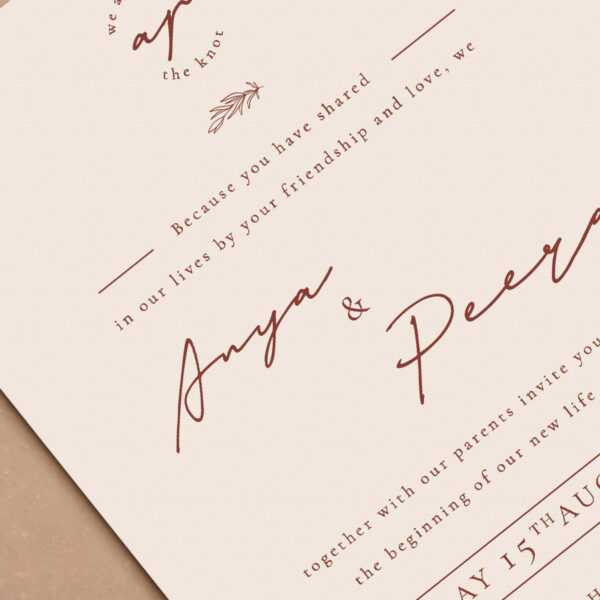 we a
ap
the knot
Because you have shared
in our lives by your friendship and love, we
Anya & Peera
together with our parents invite you
the beginning of our new life
AY 15TH AUG